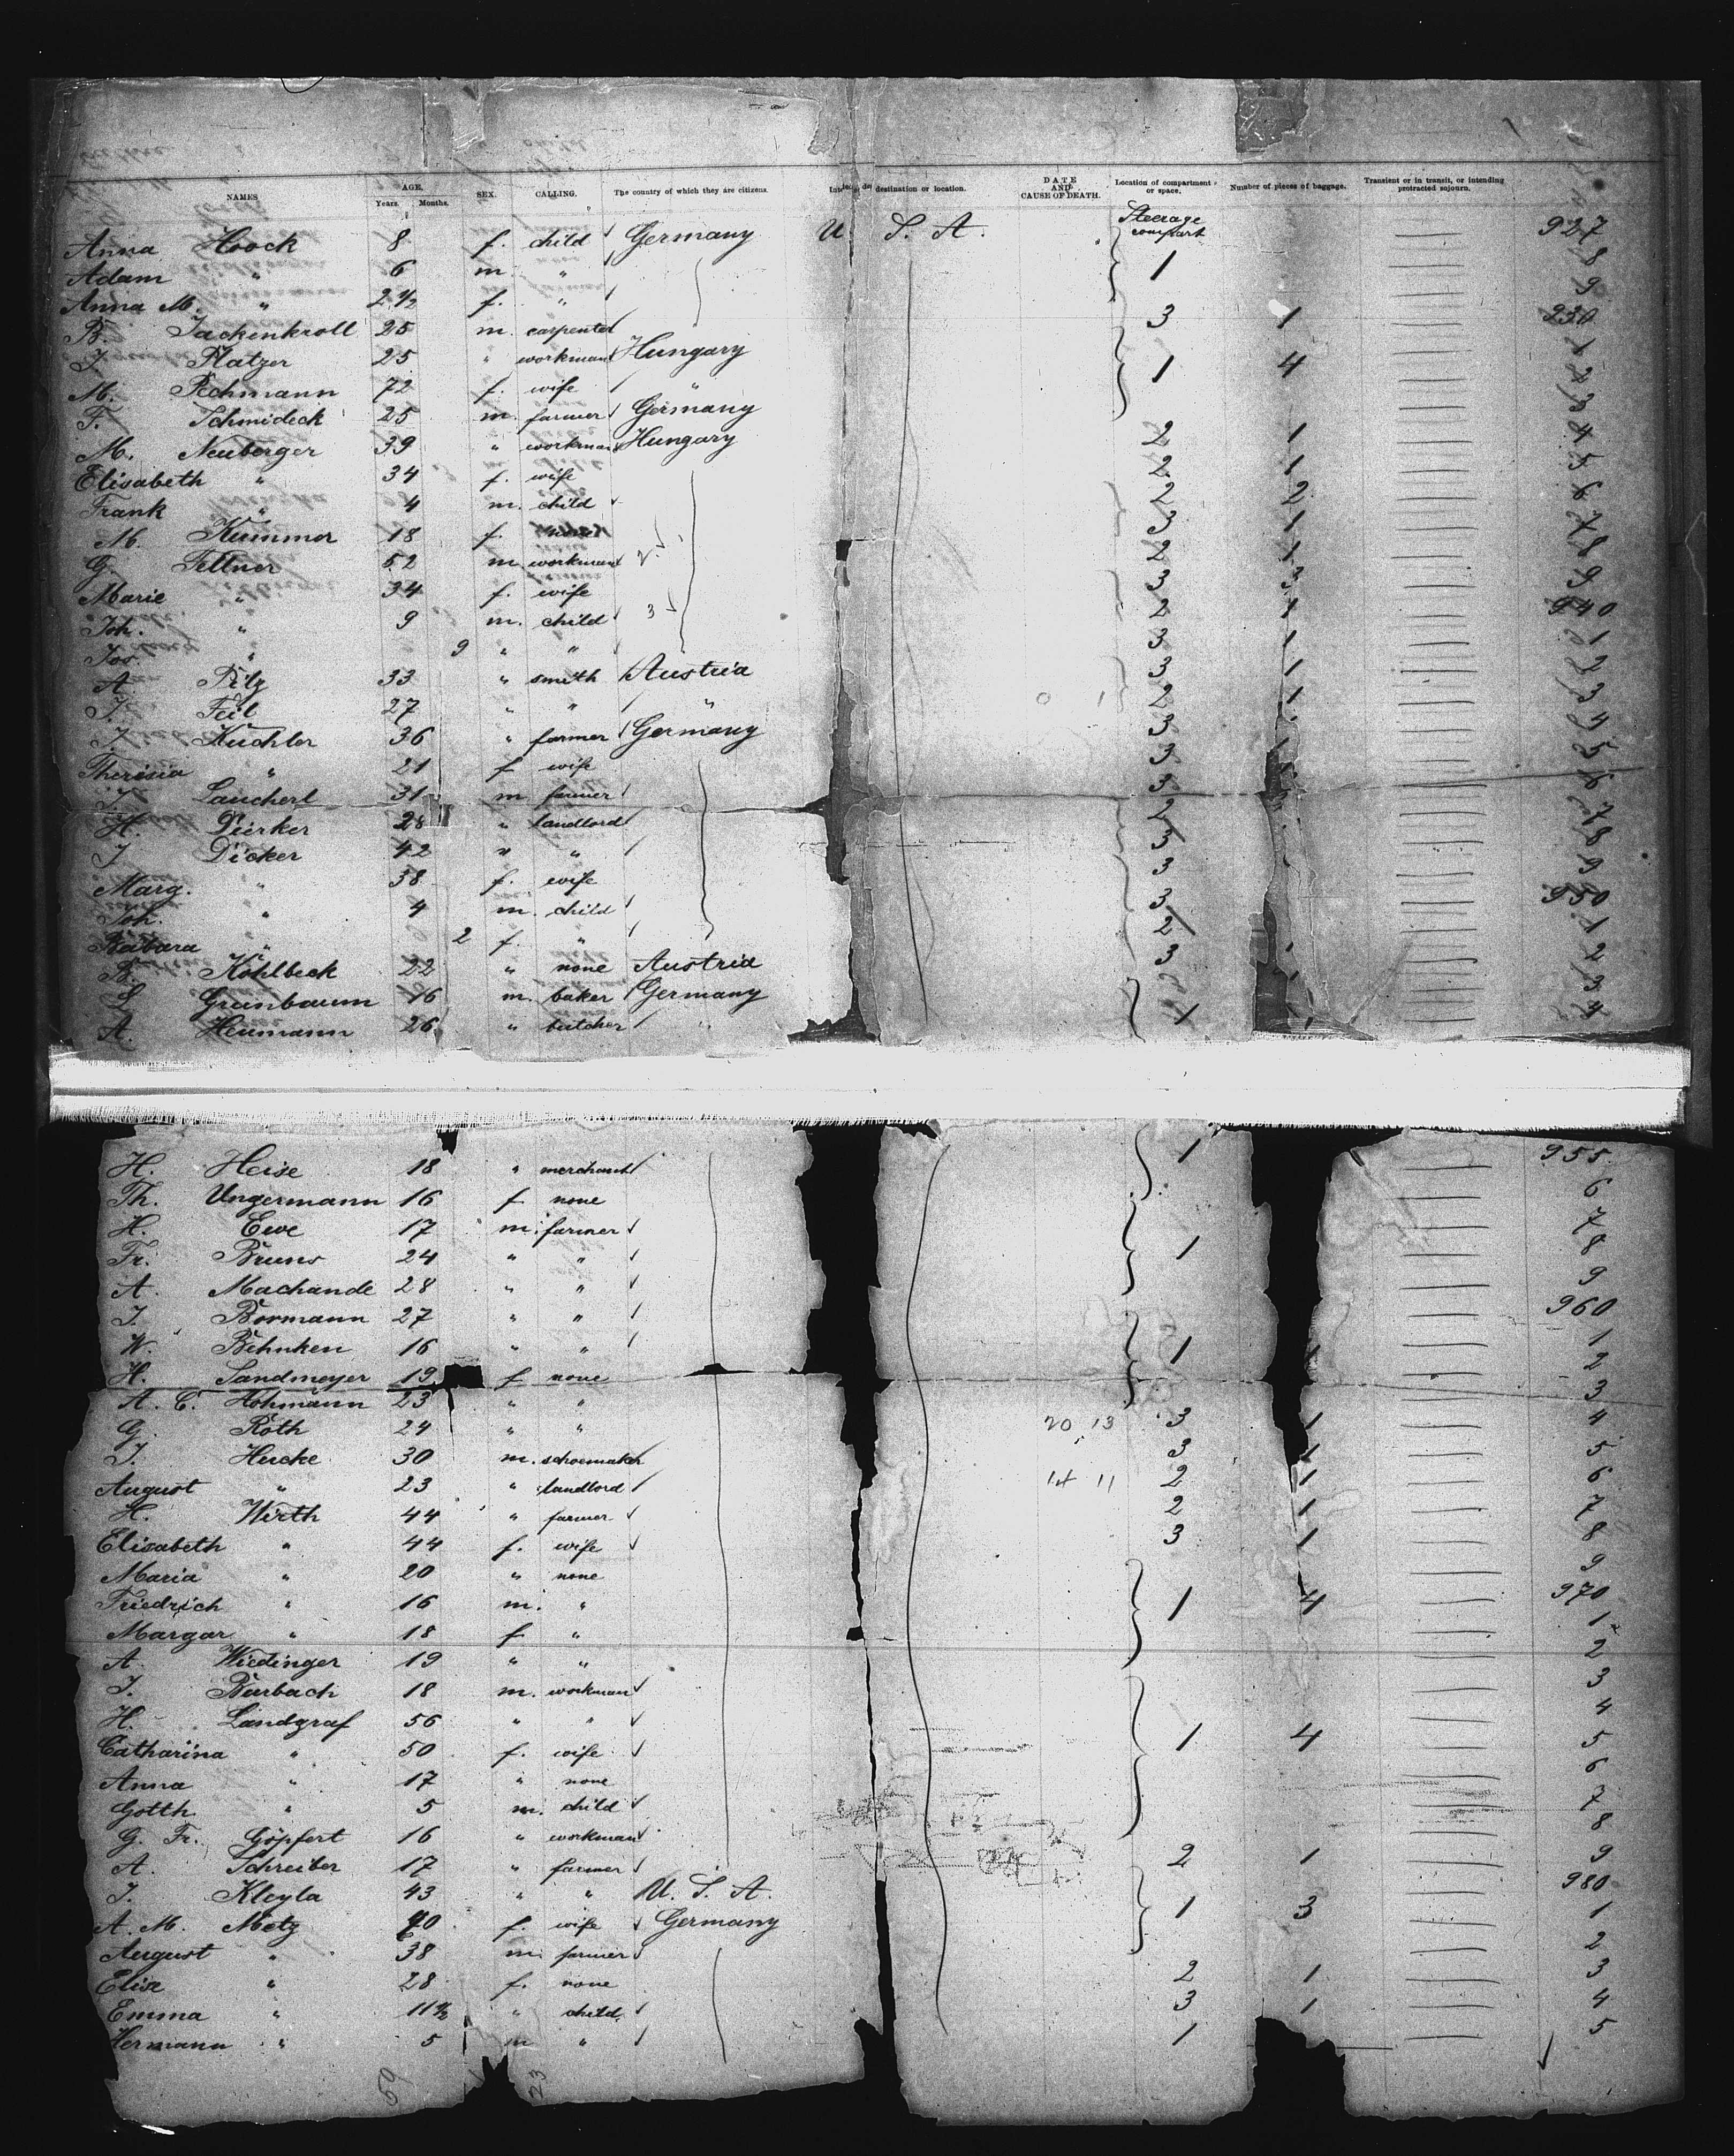 NAMES AGE. Years. Months. SEX. CALLING. The country of which they are citizens. Intended destination or location. DATE AND CAUSE OF DEATH. Location of compartment or space. Number of pieces of baggage. Transient or in transit, or intending protracted sojourn.
Anna Hoock 8 f. child Germany U. S. A. Steerage compart 927
Adam " 6 m " 1 8
Anna M. " 2 1/2 f. " 9
B. Jackenkroll 25 m. carpenter 3 1 930
J. Platzer 25 " workman Hungary 1
M. Pechmann 72 f. wife " 1 4 2
F. Schmideck 25 m. farmer Germany 3
M. Neuberger 39 " workman Hungary 2 1 4
Elisabeth " 34 f. wife 2 1 5
Frank " 4 m. child 2 2 6
M. Kummer 18 f. 3 1 7
G. Fellner 52 m workman 2 1 8
Marie " 34 f. wife 3 3 9
Joh. " 9 m. child 2 1 940
Jos. " 9 " " 3 1 1
A. Pilz 33 " smith Austria 3 1 2
J. Feil 27 " " " 2 1 3
J. Küchler 36 " farmer Germany 3 4
Theresia " 21 f wife 3 5
J. Lauchert 31 m farmer 3 6
H. Dierker 28 " landlord 2 7
J. Dicker 42 " " 3 8
Marg. " 38 f. wife 3 9
Joh. " 4 m. child 3 950
Babara " 2 f. " 2 1
B. Köhlbeck 22 " none Austria 3 2
L. Grünbaum 16 m. baker Germany 3
A. Heumann 26 " butcher 1 4
H. Heise 18 " merchant 1 955
Th. Ungermann 16 f none 6
H. Ewe 17 m. farmer 7
Fr. Bruns 24 " " 1 8
A. Machande 28 " " 9
J. Bormann 27 " " 960
W. Behnken 16 " " 1 1
H. Sandmeyer 19 f none 2
A. C. Hohmann 23 " " 3
G. Roth 24 " " 20 13 3 1 4
J. Hucke 30 m. schoemaker 3 1 5
August " 23 " landlord 14 11 2 1 6
H. Wirth 44 " farmer 2 1 7
Elisabeth " 44 f. wife 3 1 8
Maria " 20 " none 9
Friedrich " 16 m. " 1 4 970
Margar " 18 f " 1
A. Wiedinger 19 " " 2
J. Burbach 18 m. workman 3
H. Landgraf 56 " " 4
Catharina " 50 f. wife 1 4 5
Anna " 17 " none 6
Gotth. " 5 m. child 7
G. Fr. Göpfert 16 " workman 8
A. Schreiber 17 " farmer 2 1 9
J. Kleyla 43 " " U. S. A. 980
A. M. Metz 70 f. wife Germany 1 3 1
August " 38 m. farmer 2
Elise " 28 f. none 2 1 3
Emma " 11 1/2 " child 3 1 4
Hermann " 5 m " 1 5
59 23